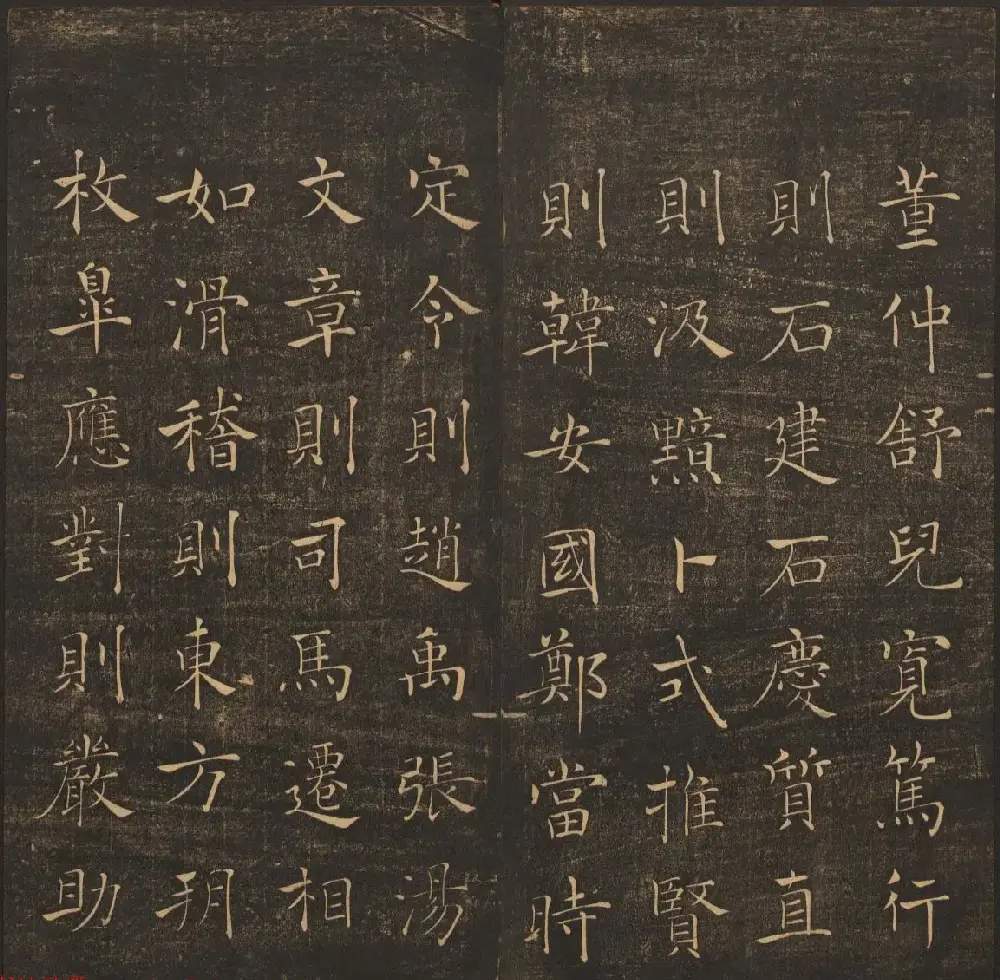 董仲舒兒寬篤行
則石建石慶質直
則汲黯卜式推賢
則韓安國鄭當時
定令則趙禹張湯
文章則司馬遷相
如滑稽則東方朔
枚皐應對則嚴助